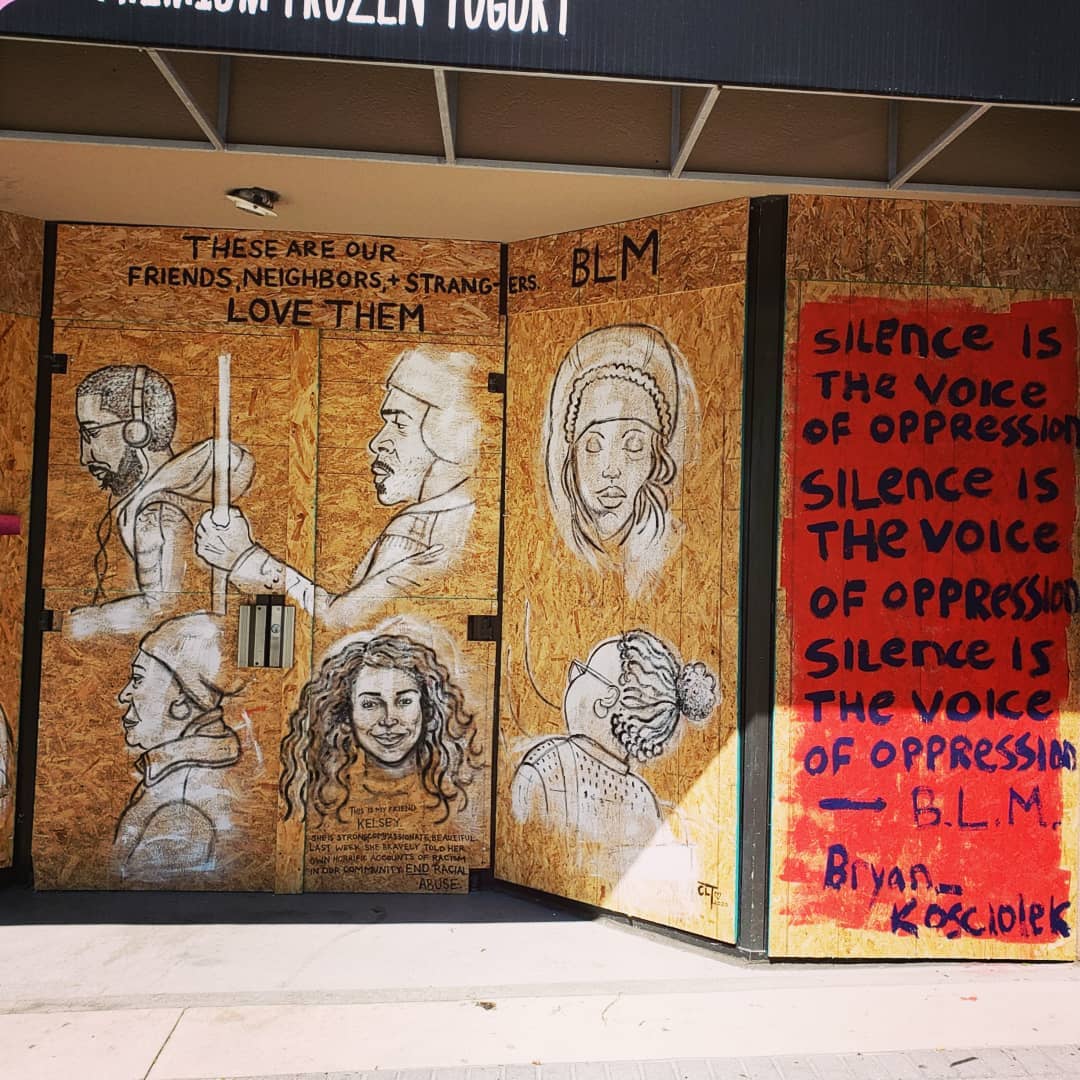 PREMIUM FROZEN YOGURT
THESE ARE OUR
FRIENDS, NEIGHBORS, + STRANG-ERS.
LOVE THEM
BLM
THIS IS MY FRIEND
KELSEY.
SHE IS STRONG, COMPASSIONATE, BEAUTIFUL.
LAST WEEK SHE BRAVELY TOLD HER
OWN HORRIFIC ACCOUNTS OF RACISM
IN OUR COMMUNITY. END RACIAL
ABUSE.
CLT
2020
SILENCE IS
THE VOICE
OF OPPRESSION
SILENCE IS
THE VOICE
OF OPPRESSION
SILENCE IS
THE VOICE
OF OPPRESSION
— B.L.M.
Bryan_
Kosciolek